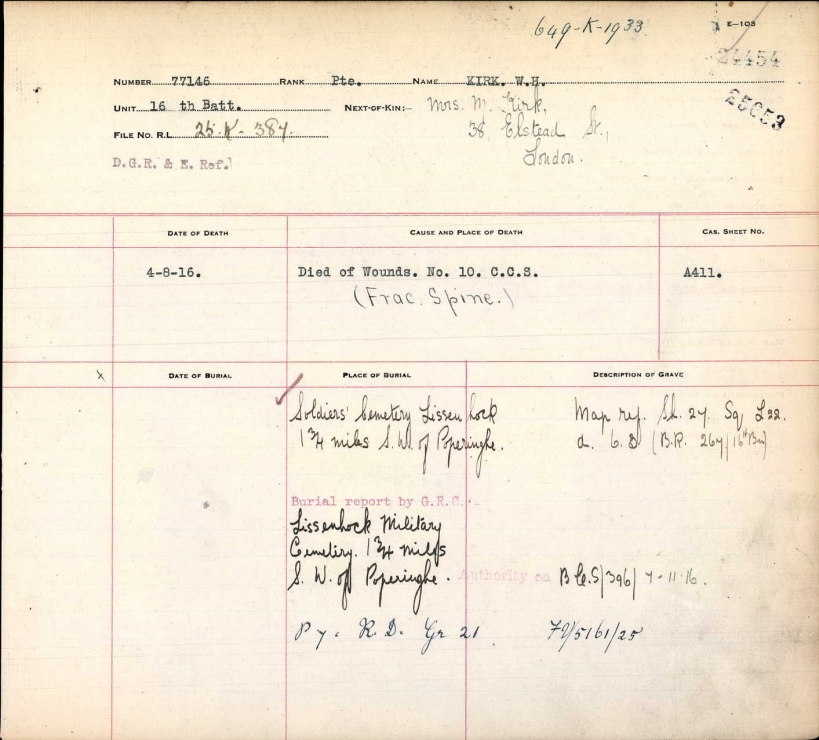 649-K-1933.
E—103
24454
25653
NUMBER 77146 RANK Pte. NAME KIRK. W.H.
UNIT 16 th Batt. NEXT-OF-KIN:- Mrs. M. Kirk,
38, Elstead St.,
London.
FILE NO. R.L. 25-K-387.
D.G.R. & E. Ref.
DATE OF DEATH CAUSE AND PLACE OF DEATH CAS. SHEET NO.
4-8-16. Died of Wounds. No. 10. C.C.S. A411.
(Frac. Spine.)
x DATE OF BURIAL PLACE OF BURIAL DESCRIPTION OF GRAVE
Soldiers' Cemetery Lissenhock Map ref. Sh. 27. Sq. L22.
1 3/4 miles S.W. of Poperinghe. d. 6.3 (B.R. 267/16th Bn)
Burial report by G.R.C.
Lissenhock Military
Cemetery. 1 3/4 miles
S. W. of Poperinghe. Authority on 7-11-16.
P 7. R.D. Gr 21 79/5161/25